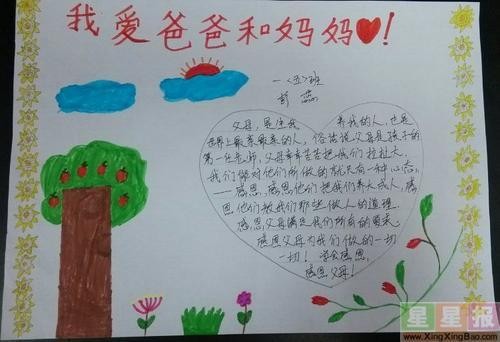 我爱爸爸和妈妈❤!
一〈五〉班
父母,是生我 养我的人,也是
世界上最亲最亲的人,俗话说父母是孩子的
第一任老师,父母辛辛苦苦把我们拉扯大,
我们能对他们所做的就只有一种心态,
——感恩,感恩他们把我们养大成人,感
恩他们教我们那些做人的道理.
感恩父母满足我们所有的要求.
感恩父母为我们做的一切
一切!学会感恩,
感恩父母!
星星报
www.XingXingBao.com